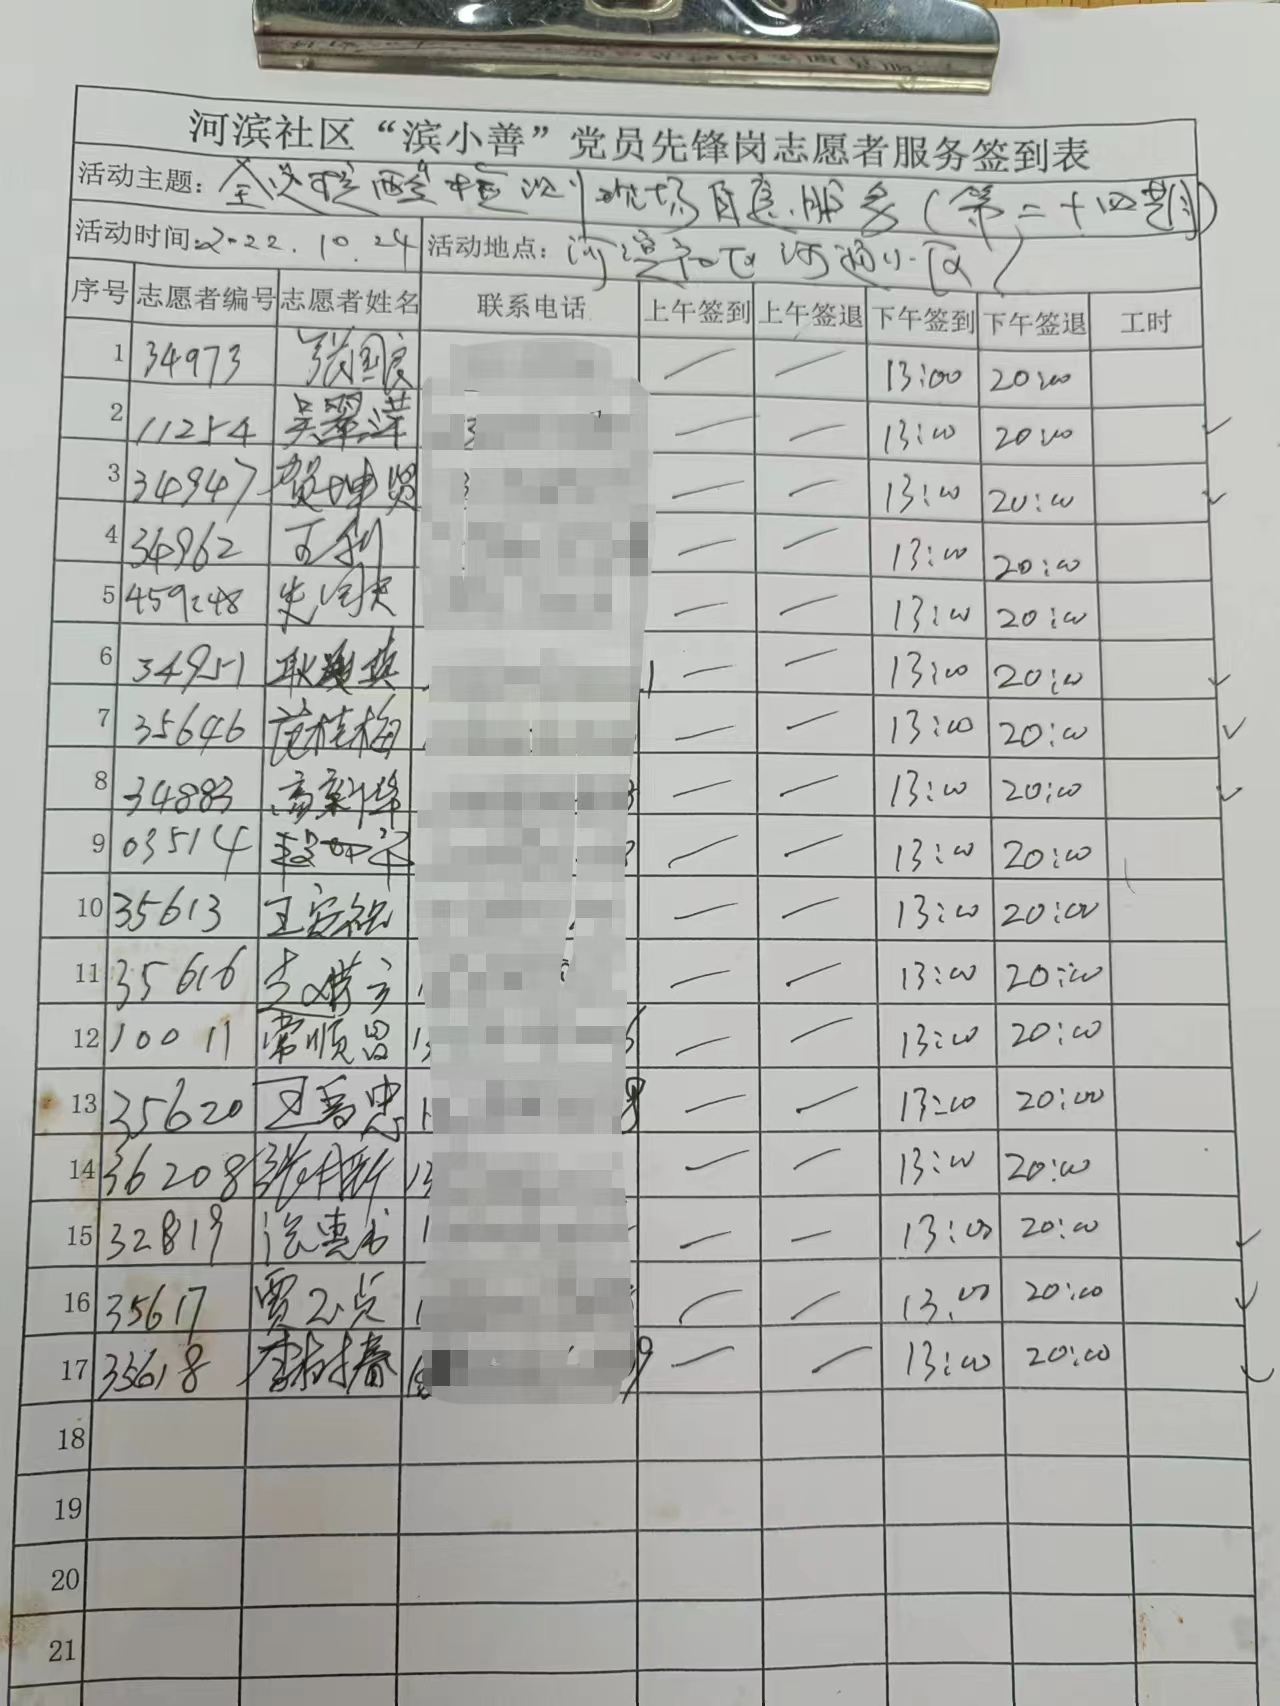 河滨社区“滨小善”党员先锋岗志愿者服务签到表
活动主题：全员核酸检测现场志愿服务（第二十四期）
活动时间：2022.10.24 活动地点：河滨社区河通小区
序号 志愿者编号 志愿者姓名 联系电话 上午签到 上午签退 下午签到 下午签退 工时
1 34973 张国良 — — 13:00 20:00
2 11254 吴翠萍 — — 13:00 20:00
3 34947 贺坤贤 — — 13:00 20:00
4 34962 王利 — — 13:00 20:00
5 459248 — — 13:00 20:00
6 34951 — — 13:00 20:00
7 35646 范桂梅 — — 13:00 20:00
8 34883 高新华 — — 13:00 20:00
9 03514 — — 13:00 20:00
10 35613 王安祝 — — 13:00 20:00
11 35616 — — 13:00 20:00
12 10011 常顺昌 — — 13:00 20:00
13 35620 王春忠 — — 13:00 20:00
14 36208 — — 13:00 20:00
15 32819 — — 13:00 20:00
16 35617 贾玉贞 — — 13:00 20:00
17 35618 李树春 — — 13:00 20:00
18
19
20
21